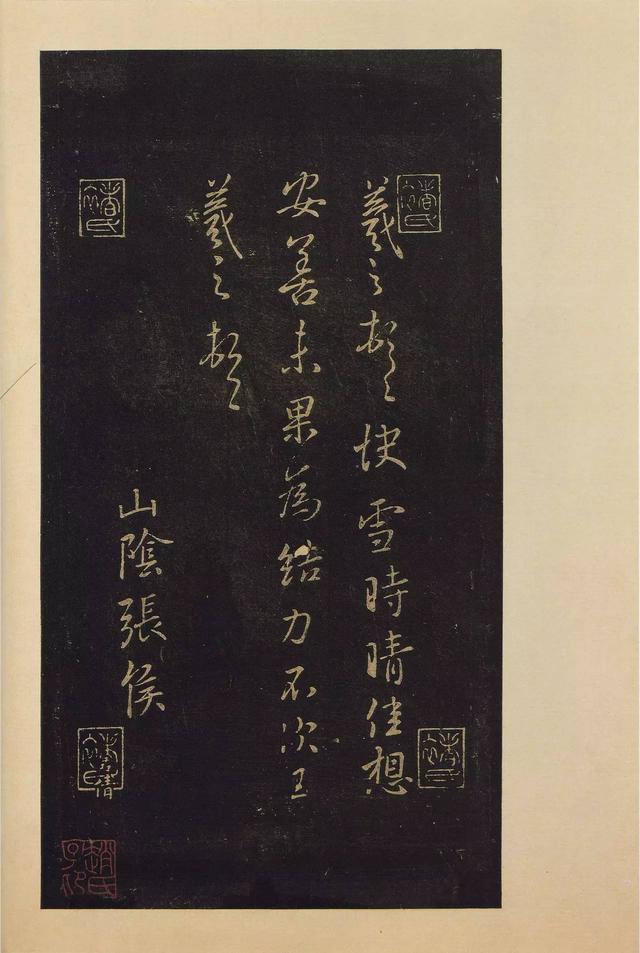 羲之頓首快雪時晴佳想
安善未果為結力不次王
羲之頓首
山陰張侯
趙氏子昂